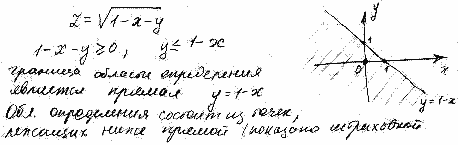 Z = √1-x-y
1-x-y ≥ 0, y ≤ 1-x
граница области определения
является прямая y=1-x
Обл. определения состоит из точек,
лежащих ниже прямой (показано штриховкой.
y
1
0
1
x
y=1-x